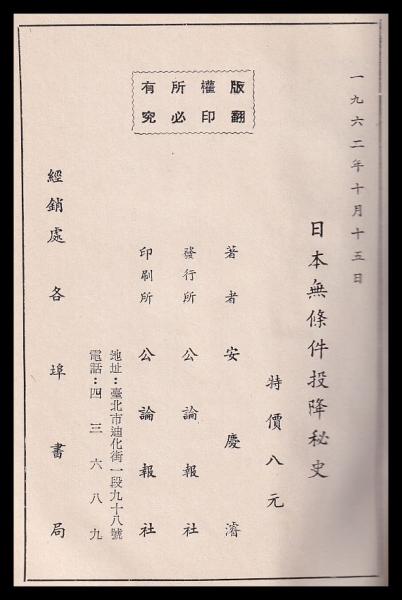 一九六二年十月十五日
日本無條件投降秘史
特價八元
版權所有
翻印必究
著者 安慶濬
發行所 公論報社
印刷所 公論報社
地址：臺北市迪化街一段九十八號
電話：四三六八九
經銷處 各埠書局